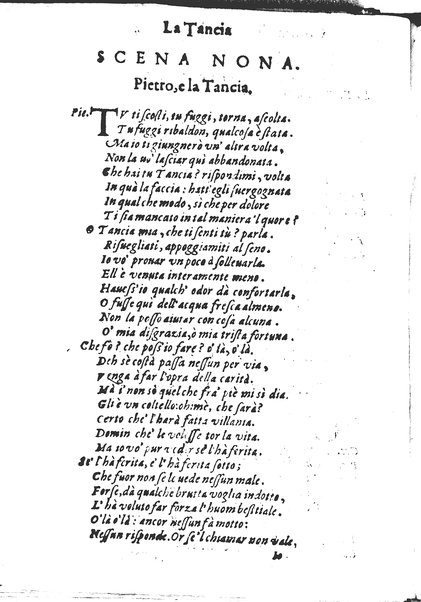 La Tancia
SCENA NONA.
Pietro, e la Tancia.
Pie. TV ti scosti, tu fuggi, torna, ascolta.
Tu fuggi ribaldon, qualcosa è stata.
Ma io ti giugnerò vn' altra volta,
Non la uo' lasciar quì abbandonata.
Che hai tu Tancia? rispondimi, volta
In quà la faccia: hatt'egli suergognata
In qualche modo, si che per dolore
Ti sia mancato in tal maniera'l quore?
O Tancia mia, che ti senti tù? parla.
Risuegliati, appoggiamiti al seno.
Io vo' prouar vn poco à solleuarla.
Ell' è venuta interamente meno.
Hauess'io qualch' odor dà confortarla,
O fusse quì dell'acqua fresca almeno.
Non la posso aiutar con cosa alcuna.
O' mia disgrazia, ò mia trista fortuna.
Che fò? che poss'io fare? o'là, o'là.
Deh se costà passa nessun per via,
venga à far l'opra della carità.
Mà i' non sò quel che fra' piè mi si dia.
Gli è vn coltello: ohimè, che sarà?
Certo che l'harà fatta villania.
Domin che' le volesse tor la vita.
Ma io vo' pur veder se l'hà ferita.
Se l'hà ferita, e' l'hà ferita sotto;
Che fuor non se le uede nessun male.
Forse, da qualche brutta voglia indotto,
L'hà voluto far forza l'huom bestiale.
O'là o'là: ancor nessun fà motto:
Nessun risponde. Or se'l chiamar non vale,
Io